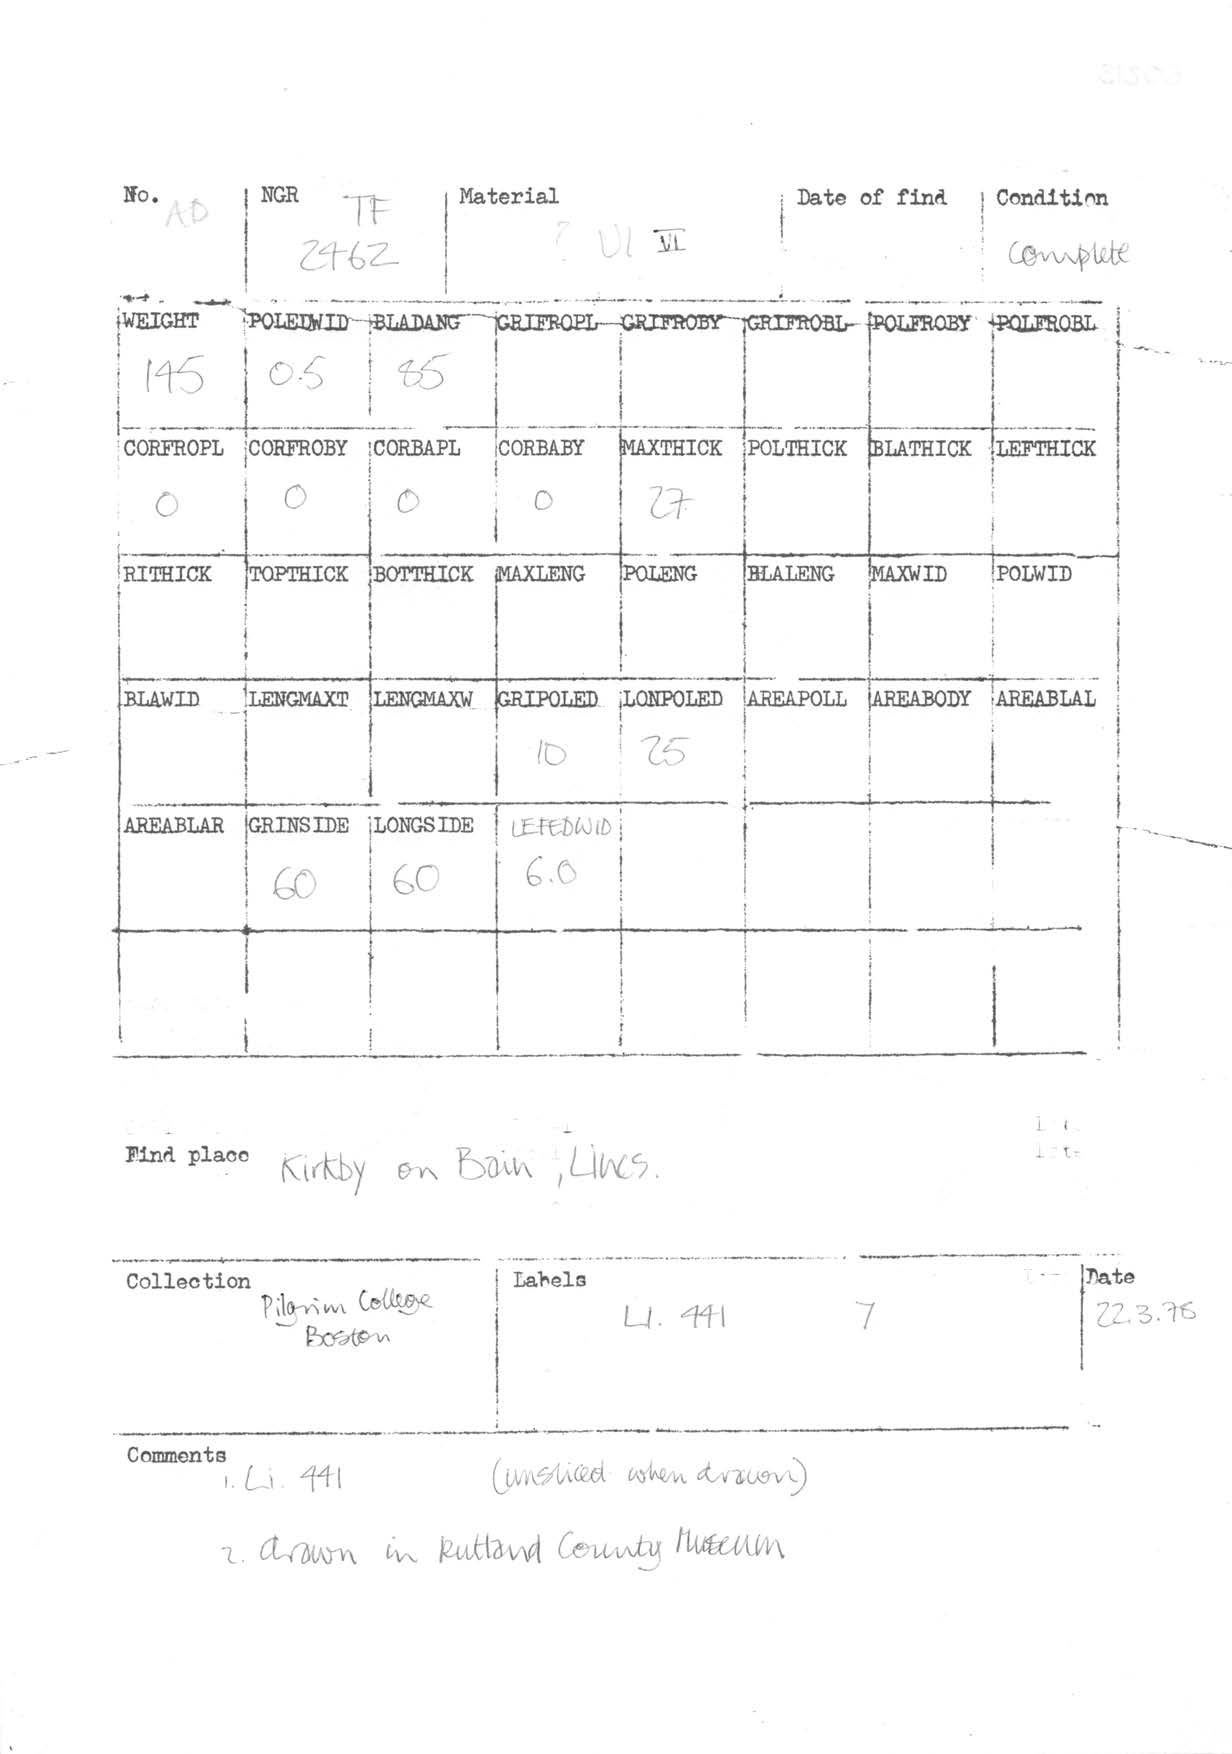 No. NGR Material Date of find Condition
AD TF
? VI VI
2462 complete
WEIGHT POLEDWID BLADANG GRIFROPL GRIFROBY GRIFROBL POLFROBY POLFROBL
145 0.5 85
CORFROPL CORFROBY CORBAPL CORBABY MAXTHICK POLTHICK BLATHICK LEFTHICK
0 0 0 0 27
RITHICK TOPTHICK BOTTHICK MAXLENG POLENG BLALENG MAXWID POLWID
BLAWID LENGMAXT LENGMAXW GRIPOLED LONPOLED AREAPOLL AREABODY AREABLAL
10 25
AREABLAR GRINSIDE LONGSIDE LEFEDWID
60 60 6.0
Find place Kirkby on Bain, Lincs.
Collection Labels Date
Pilgrim College LI. 441 7 22.3.78
Boston
Comments
1. Li. 441 (unsliced when drawn)
2. drawn in Rutland County Museum